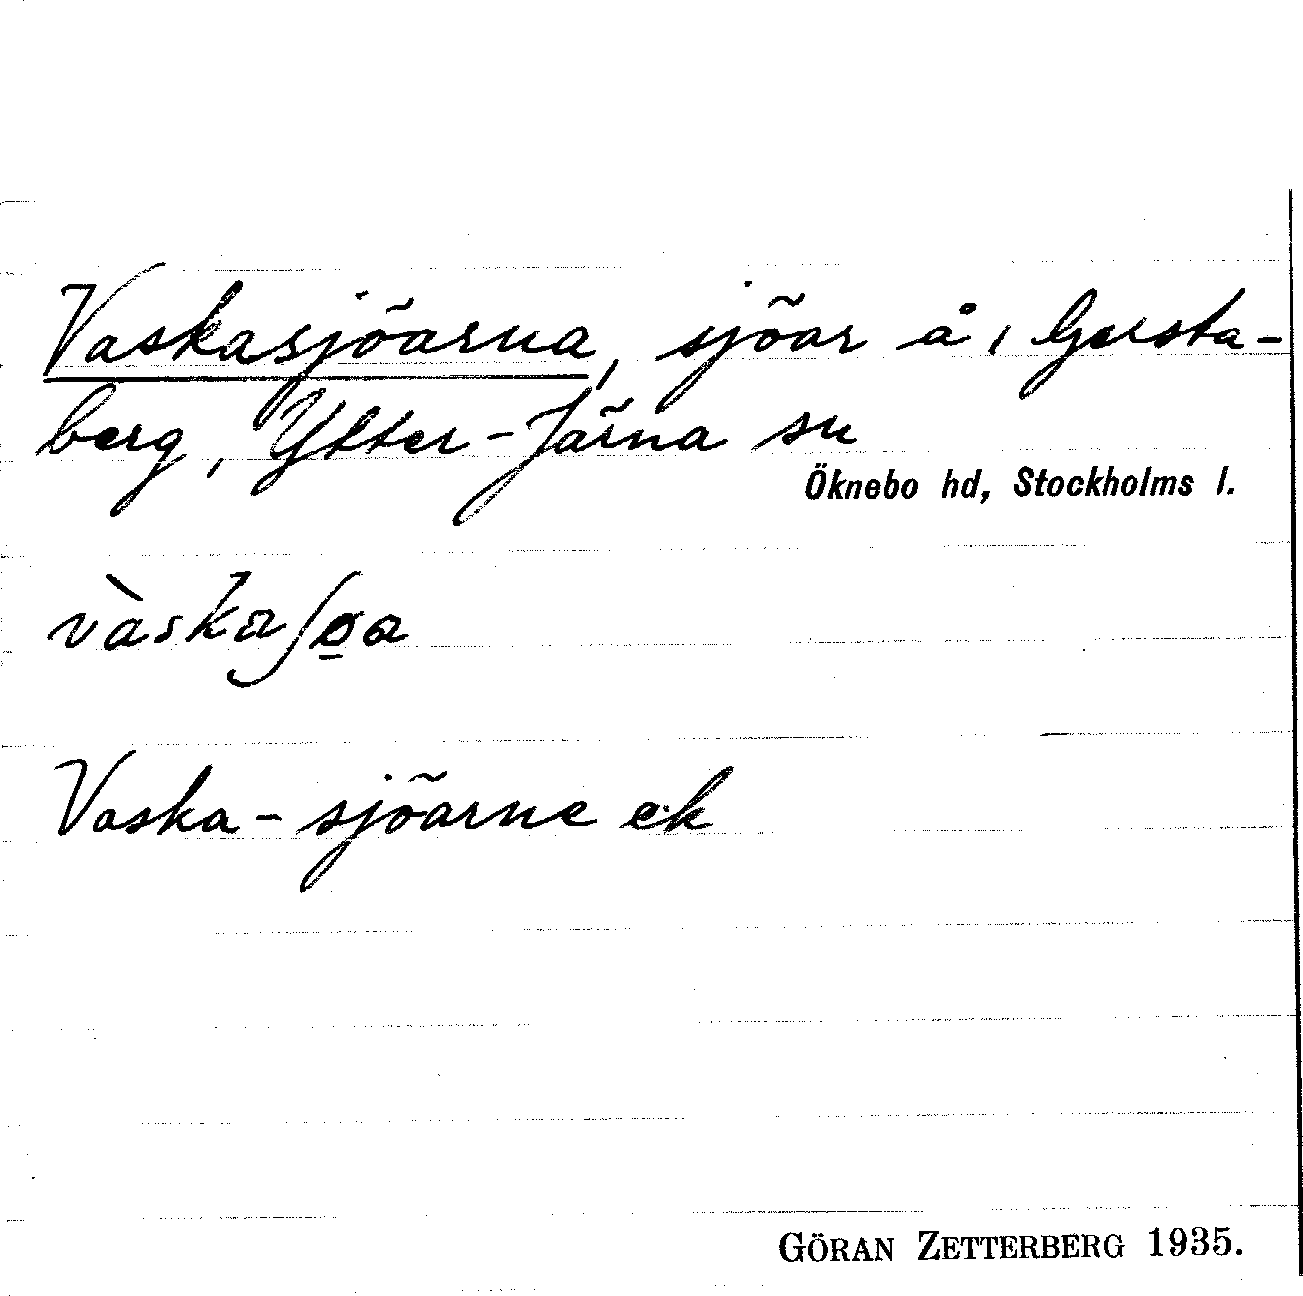 Vaskasjöarna, sjöar å, Gersta-
berg, Ytter-Järna sn
Öknebo hd, Stockholms l.
vàskaʃøa
Vaska-sjöarne ek
GÖRAN ZETTERBERG 1935.